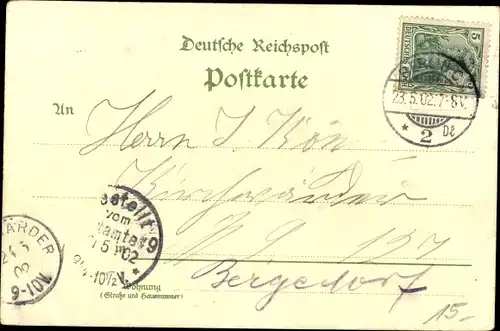 Deutsche Reichspost
Postkarte
5
An
23.5.02.7-8V.
* 2 De
Herrn J Kön
Kirchwärder
N 9 127
Bergedorf
estellt
vom
5 02
ÄRDER
24 5
02
9-10V.
Wohnung
(Straße und Hausnummer)
15.-